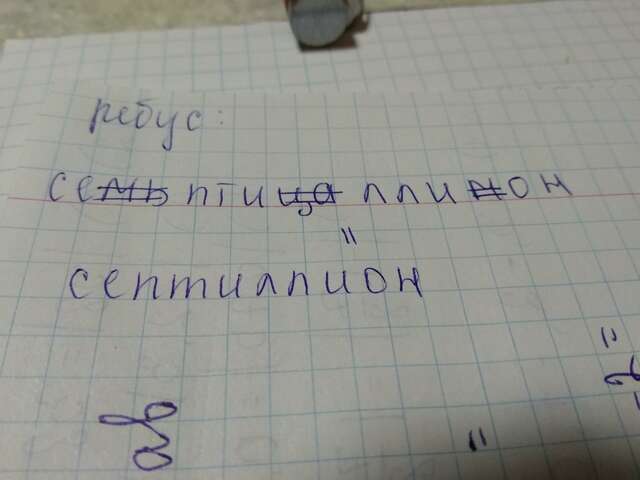 ребус:
семь птица лли нон
"
септиллион
"
"